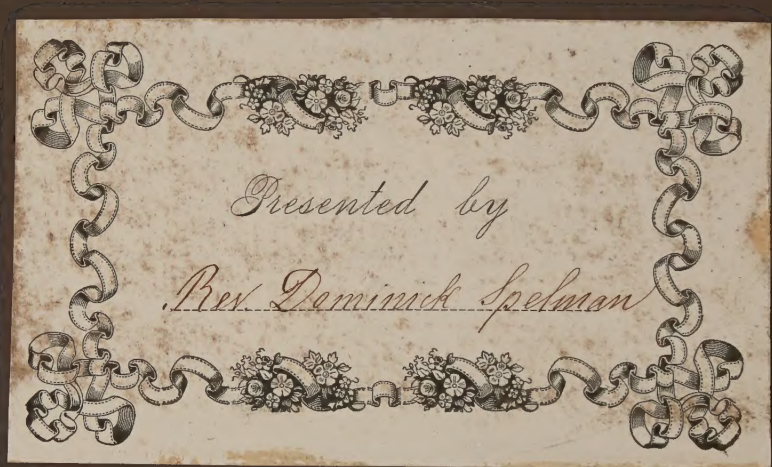 Presented by
Rev. Dominick Spelman